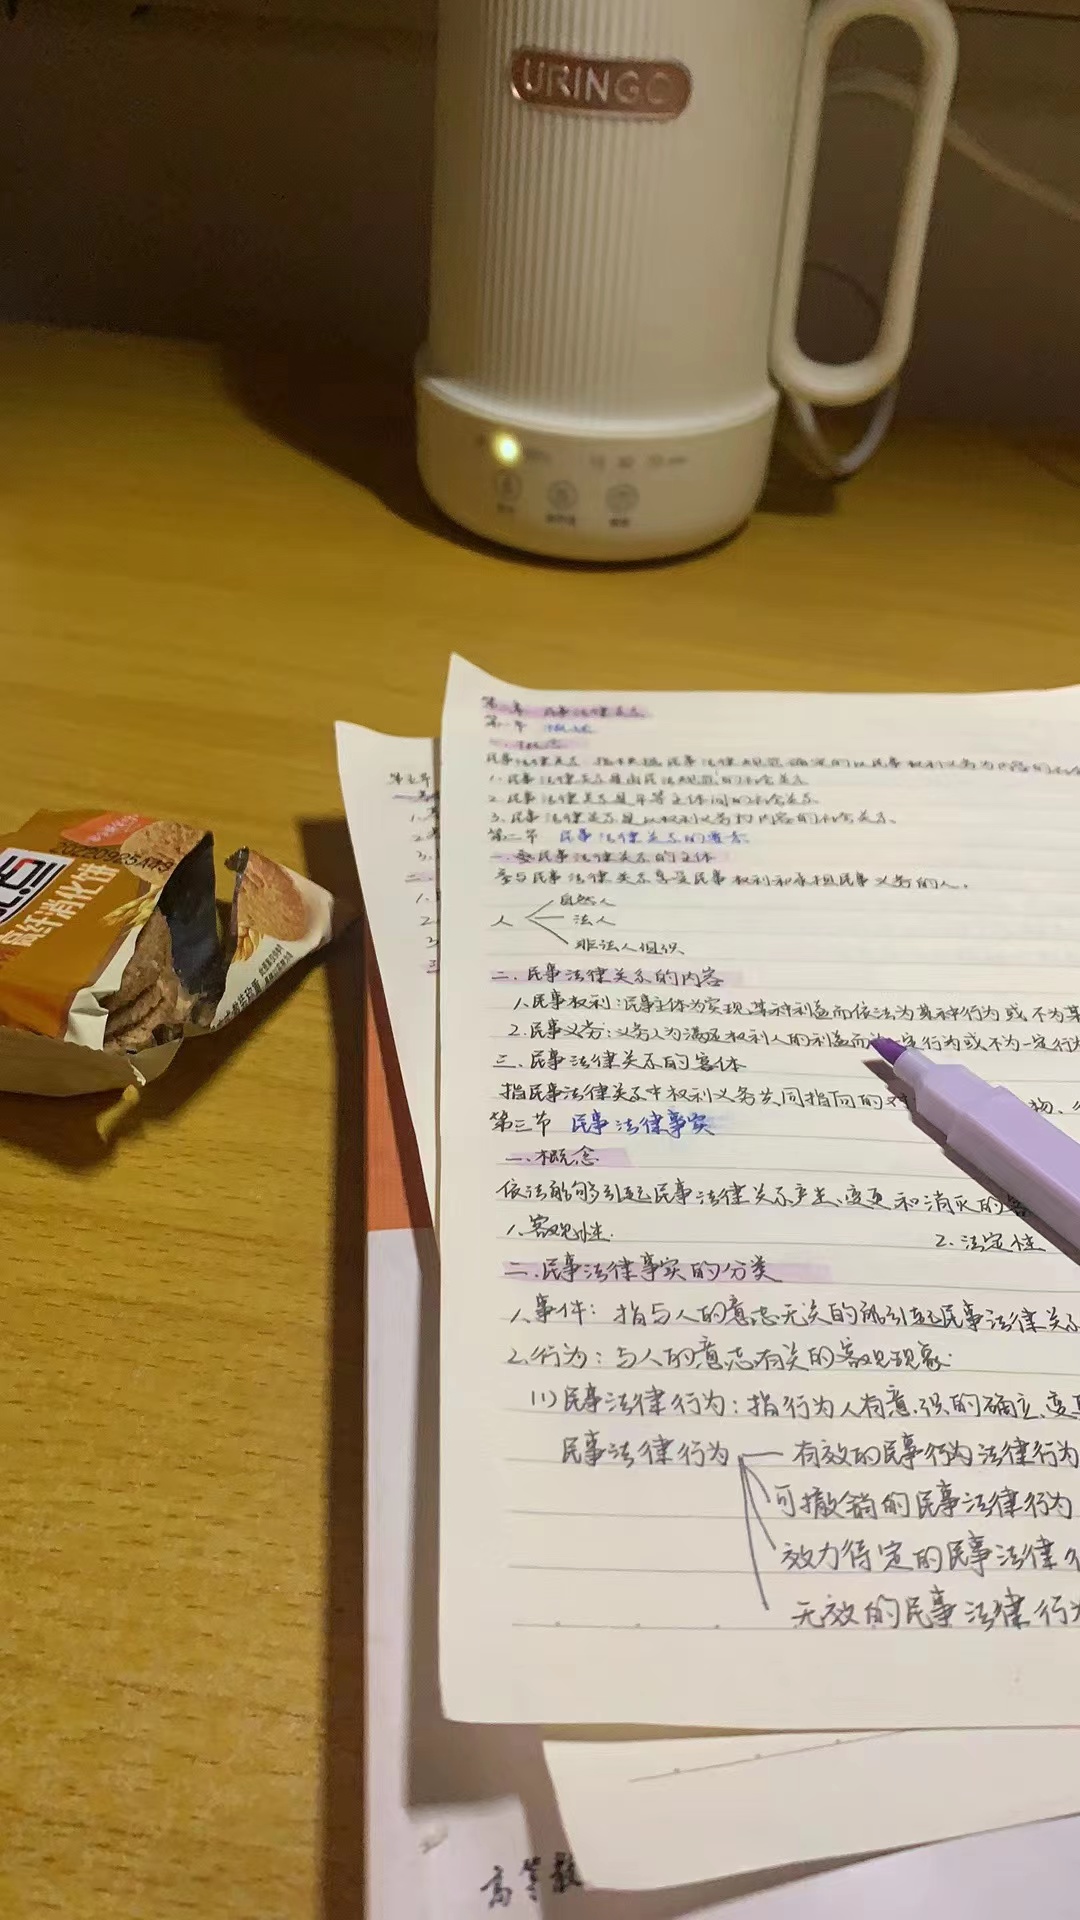 URINGO
20220925
高纤消化饼
第二章 民事法律关系
第一节 概述
一.概念
民事法律关系 指根据民事法律规范确定的以民事权利义务为内容的社会
1.民事法律关系是由民法规范的社会关系
2.民事法律关系是平等主体间的社会关系.
3.民事法律关系是以权利义务为内容的社会关系.
第二节 民事法律关系的要素
一.民事法律关系的主体
参与民事法律关系享受民事权利和承担民事义务的人.
自然人
人 法人
非法人组织
二.民事法律关系的内容
1.民事权利:民事主体为实现某种利益而依法为某种行为或不为某
2.民事义务:义务人为满足权利人的利益而 一定行为或不为一定行为
三.民事法律关系的客体
指民事法律关系中权利义务共同指向的对 物、
第三节 民事法律事实
一.概念
依法能够引起民事法律关系产生、变更和消灭的客
1.客观性. 2.法定性
二.民事法律事实的分类
1.事件: 指与人的意志无关的能引起民事法律关系
2.行为: 与人的意志有关的客观现象.
(1)民事法律行为: 指行为人有意识的确立、变更
民事法律行为 有效的民事行为法律行为
可撤销的民事法律行为
效力待定的民事法律行
无效的民事法律行为
高等数